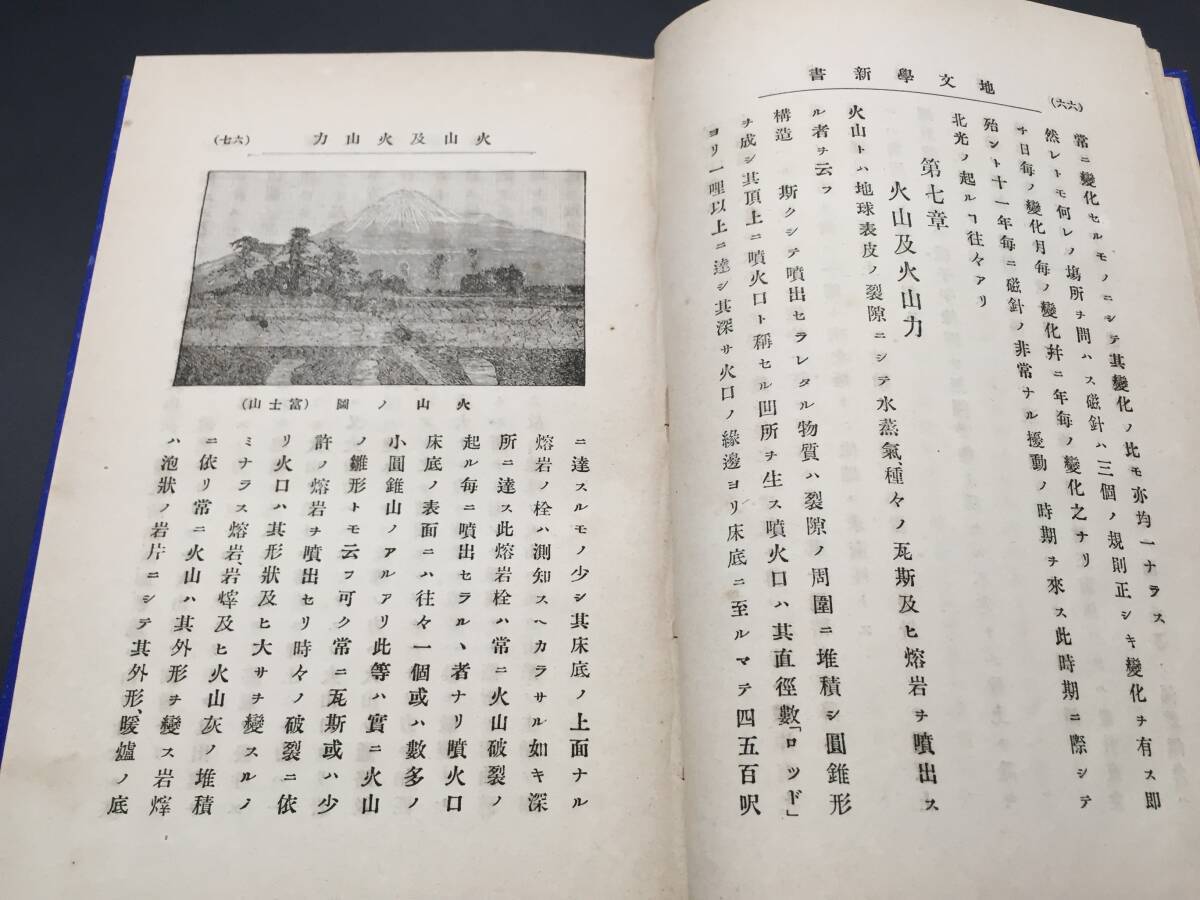 地文學新書
(六六)
常ニ變化セルモノニシテ其變化ノ比モ亦均一ナラス
然レトモ何レノ塲所ヲ問ハス磁針ハ三個ノ規則正シキ變化ヲ有ス即
チ日毎ノ變化月毎ノ變化幷ニ年毎ノ變化之ナリ
殆ント十一年毎ニ磁針ノ非常ナル擾動ノ時期ヲ來ス此時期ニ際シテ
北光ノ起ルヿ往々アリ
第七章
火山及火山力
火山トハ地球表皮ノ裂隙ニシテ水蒸氣、種々ノ瓦斯及ヒ熔岩ヲ噴出ス
ル者ヲ云フ
構造 斯クシテ噴出セラレタル物質ハ裂隙ノ周圍ニ堆積シ圓錐形
ヲ成シ其頂上ニ噴火口ト稱セル凹所ヲ生ス噴火口ハ其直徑數「ロッド」
ヨリ一哩以上ニ達シ其深サ火口ノ緣邊ヨリ床底ニ至ルマテ四五百呎
火山及火山力
(六七)
火山ノ圖(富士山)
ニ達スルモノ少シ其床底ノ上面ナル
熔岩ノ栓ハ測知スヘカラサル如キ深
所ニ達ス此熔岩栓ハ常ニ火山破裂ノ
起ル毎ニ噴出セラルヽ者ナリ噴火口
床底ノ表面ニハ往々一個或ハ數多ノ
小圓錐山ノアルアリ此等ハ實ニ火山
ノ雛形トモ云フ可ク常ニ瓦斯或ハ少
許ノ熔岩ヲ噴出セリ時々ノ破裂ニ依
リ火口ハ其形狀及ヒ大サヲ變スルノ
ミナラス熔岩、岩滓及ヒ火山灰ノ堆積
ニ依リ常ニ火山ハ其外形ヲ變ス岩滓
ハ泡狀ノ岩片ニシテ其外形、暖爐ノ底